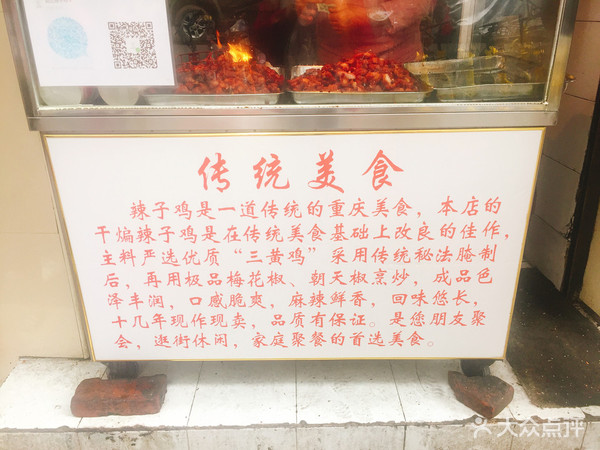 传统美食
辣子鸡是一道传统的重庆美食，本店的
干煸辣子鸡是在传统美食基础上改良的佳作，
主料严选优质“三黄鸡”采用传统秘法腌制
后，再用极品梅花椒、朝天椒烹炒，成品色
泽丰润，口感脆爽，麻辣鲜香，回味悠长，
十几年现作现卖，品质有保证。是您朋友聚
会，逛街休闲，家庭聚餐的首选美食。
大众点评